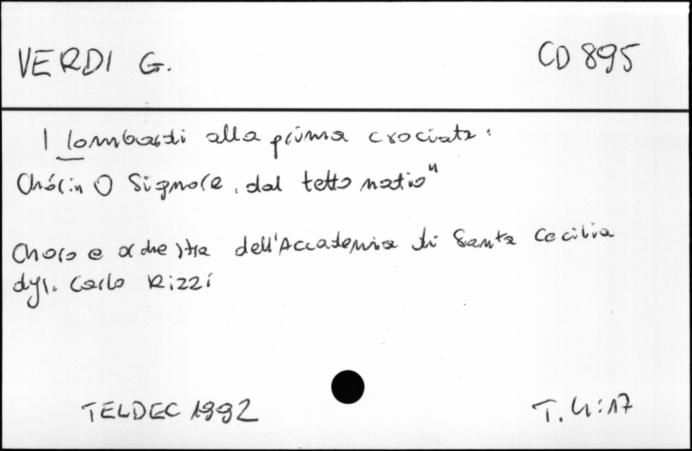 VERDI G.
CD 895
I lombardi alla prima crociata:
Chór „O Signore, dal tetto natio"
Choro e orchestra dell'Accademia di Santa Cecilia
dyr. Carlo Rizzi
TELDEC 1992
T. 4:17